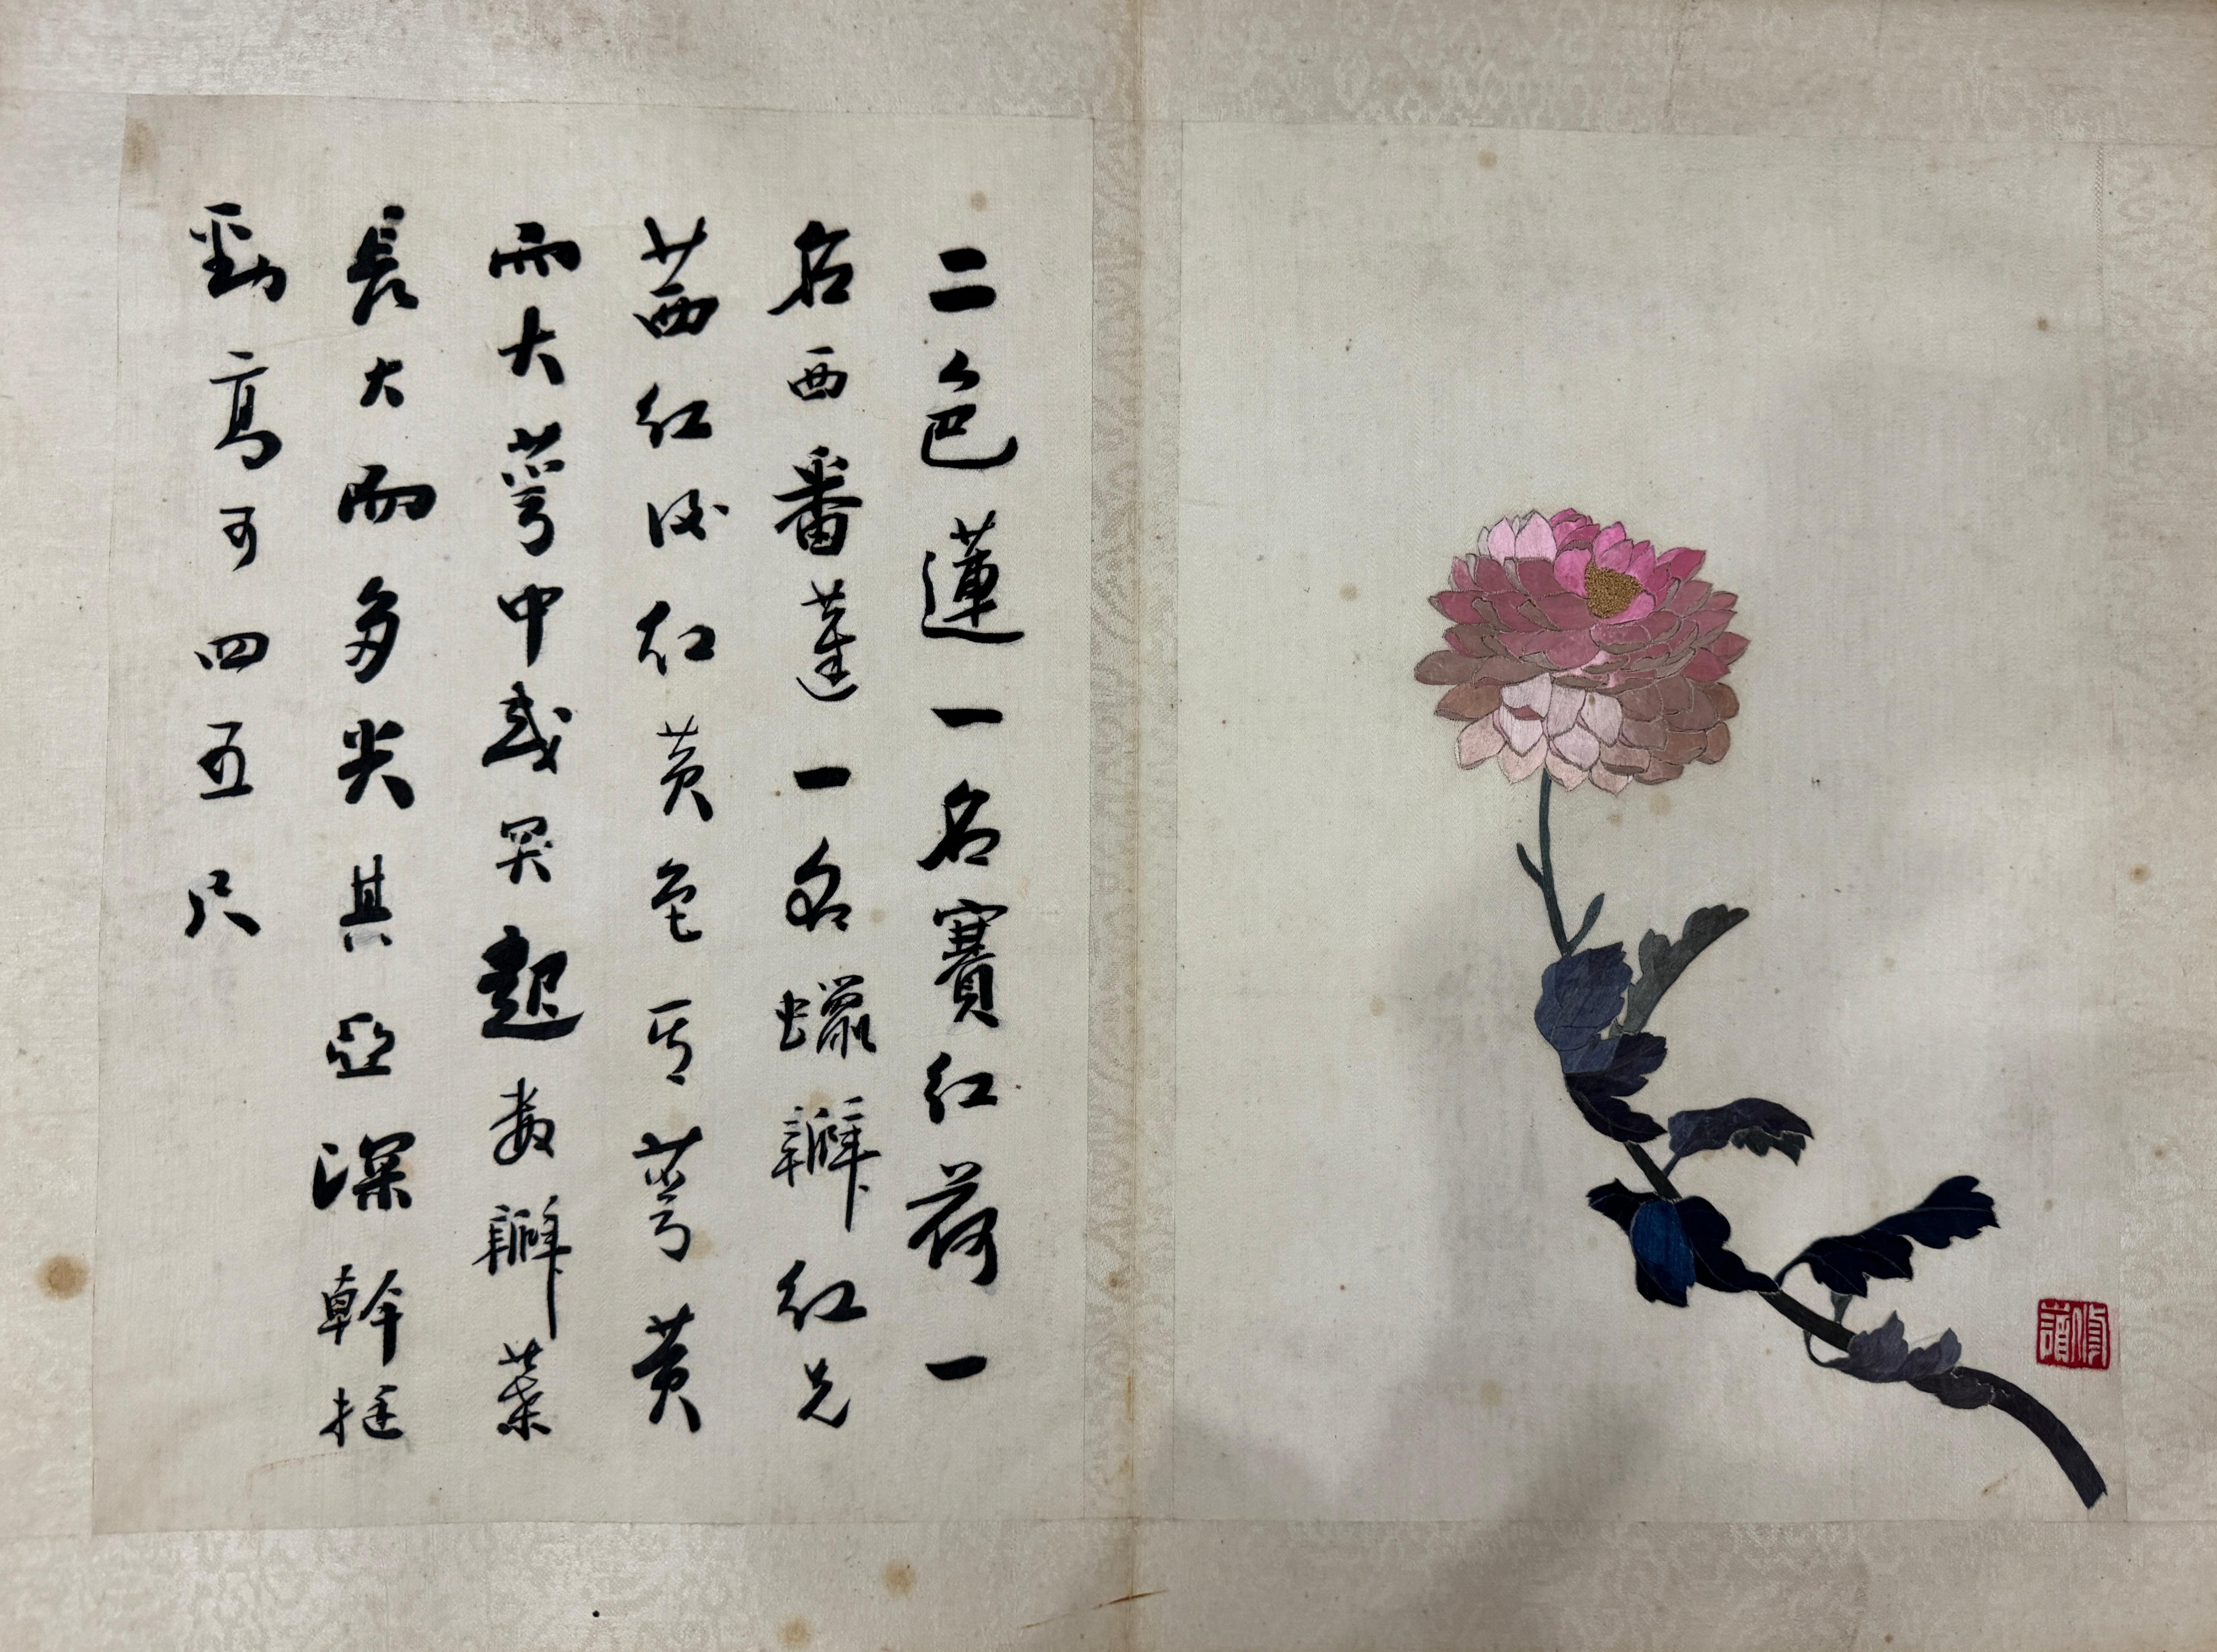 二色蓮一名賽紅荷一
名西番蓮一名蠟瓣紅先
茜紅後紅黃色萼黃
而大萼中或突起數瓣葉
長大而多尖其亞深幹挺
勁高可四五尺